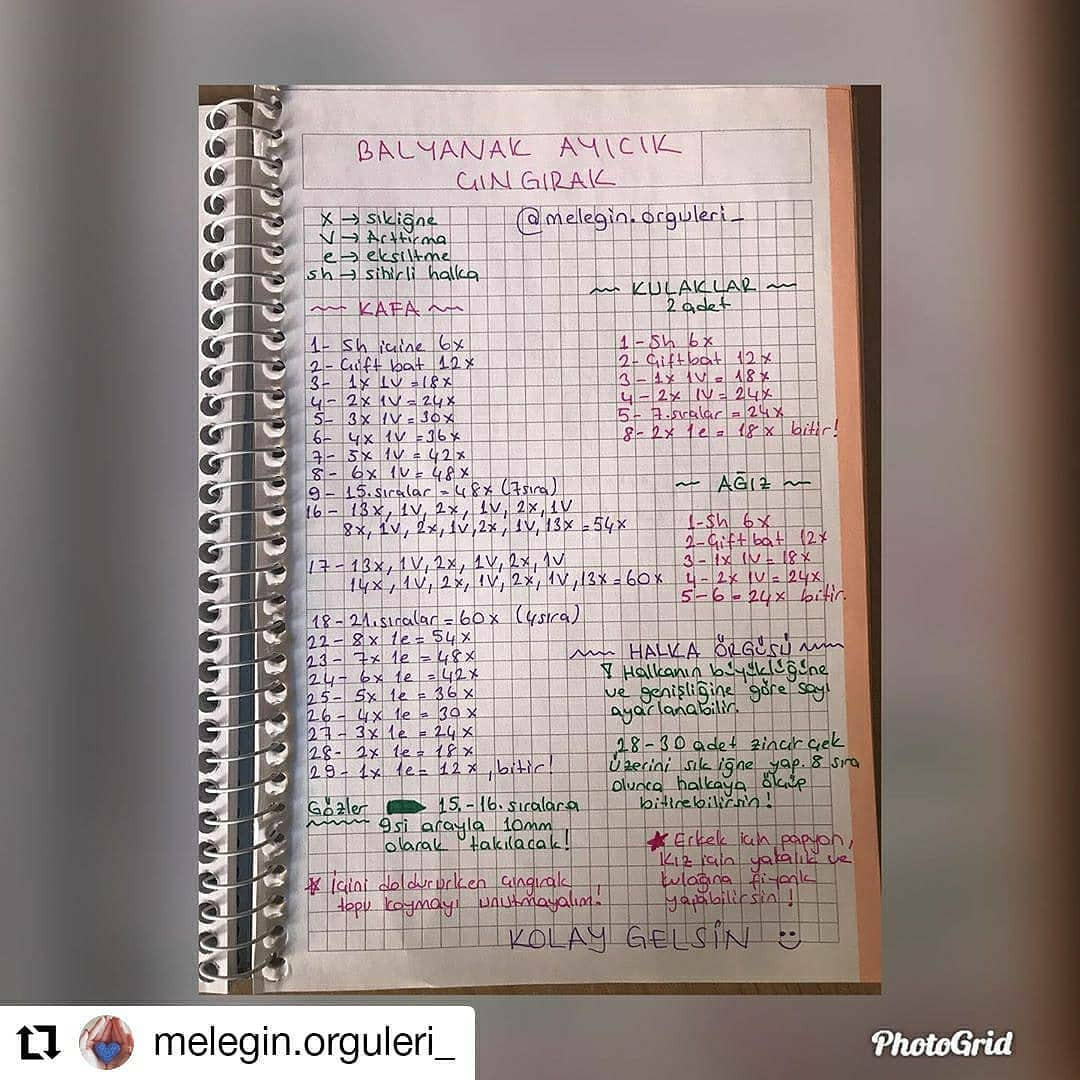 BALYANAK AYICIK
ÇINGIRAK
X → sıkiğne
V → Arttırma
e → eksiltme
sh → sihirli halka
@melegin.orguleri_
~ KAFA ~
1- Sh içine 6x
2- Çift bat 12x
3- 1x 1V = 18x
4- 2x 1V = 24x
5- 3x 1V = 30x
6- 4x 1V = 36x
7- 5x 1V = 42x
8- 6x 1V = 48x
9- 15.sıralar = 48x (7sıra)
16- 13x, 1V, 2x, 1V, 2x, 1V
8x, 1V, 2x, 1V, 2x, 1V, 13x = 54x
17- 13x, 1V, 2x, 1V, 2x, 1V
14x, 1V, 2x, 1V, 2x, 1V, 13x = 60x
18-21.sıralar = 60x (4sıra)
22- 8x 1e = 54x
23- 7x 1e = 48x
24- 6x 1e = 42x
25- 5x 1e = 36x
26- 4x 1e = 30x
27- 3x 1e = 24x
28- 2x 1e = 18x
29- 1x 1e = 12x, bitir!
Gözler 15.-16. sıralara
9si arayla 10mm
olarak takılacak!
* İçini doldururken çıngırak
topu koymayı unutmayalım!
~ KULAKLAR ~
2 adet
1- Sh 6x
2- Çift bat 12x
3- 1x 1V = 18x
4- 2x 1V = 24x
5- 7.sıralar = 24x
8- 2x 1e = 18x bitir!
~ AĞIZ ~
1- Sh 6x
2- Çift bat 12x
3- 1x 1V = 18x
4- 2x 1V = 24x
5-6 = 24x bitir.
~ HALKA ÖRGÜSÜ ~
Halkanın büyüklüğüne
ve genişliğine göre sayı
ayarlanabilir.
28-30 adet zincir çek
üzerini sık iğne yap. 8 sıra
olunca halkaya
bitirebilirsin!
* Erkek için papyon,
kız için yakalık ve
kulağına fiyonk
yapabilirsin!
KOLAY GELSİN
melegin.orguleri_
PhotoGrid